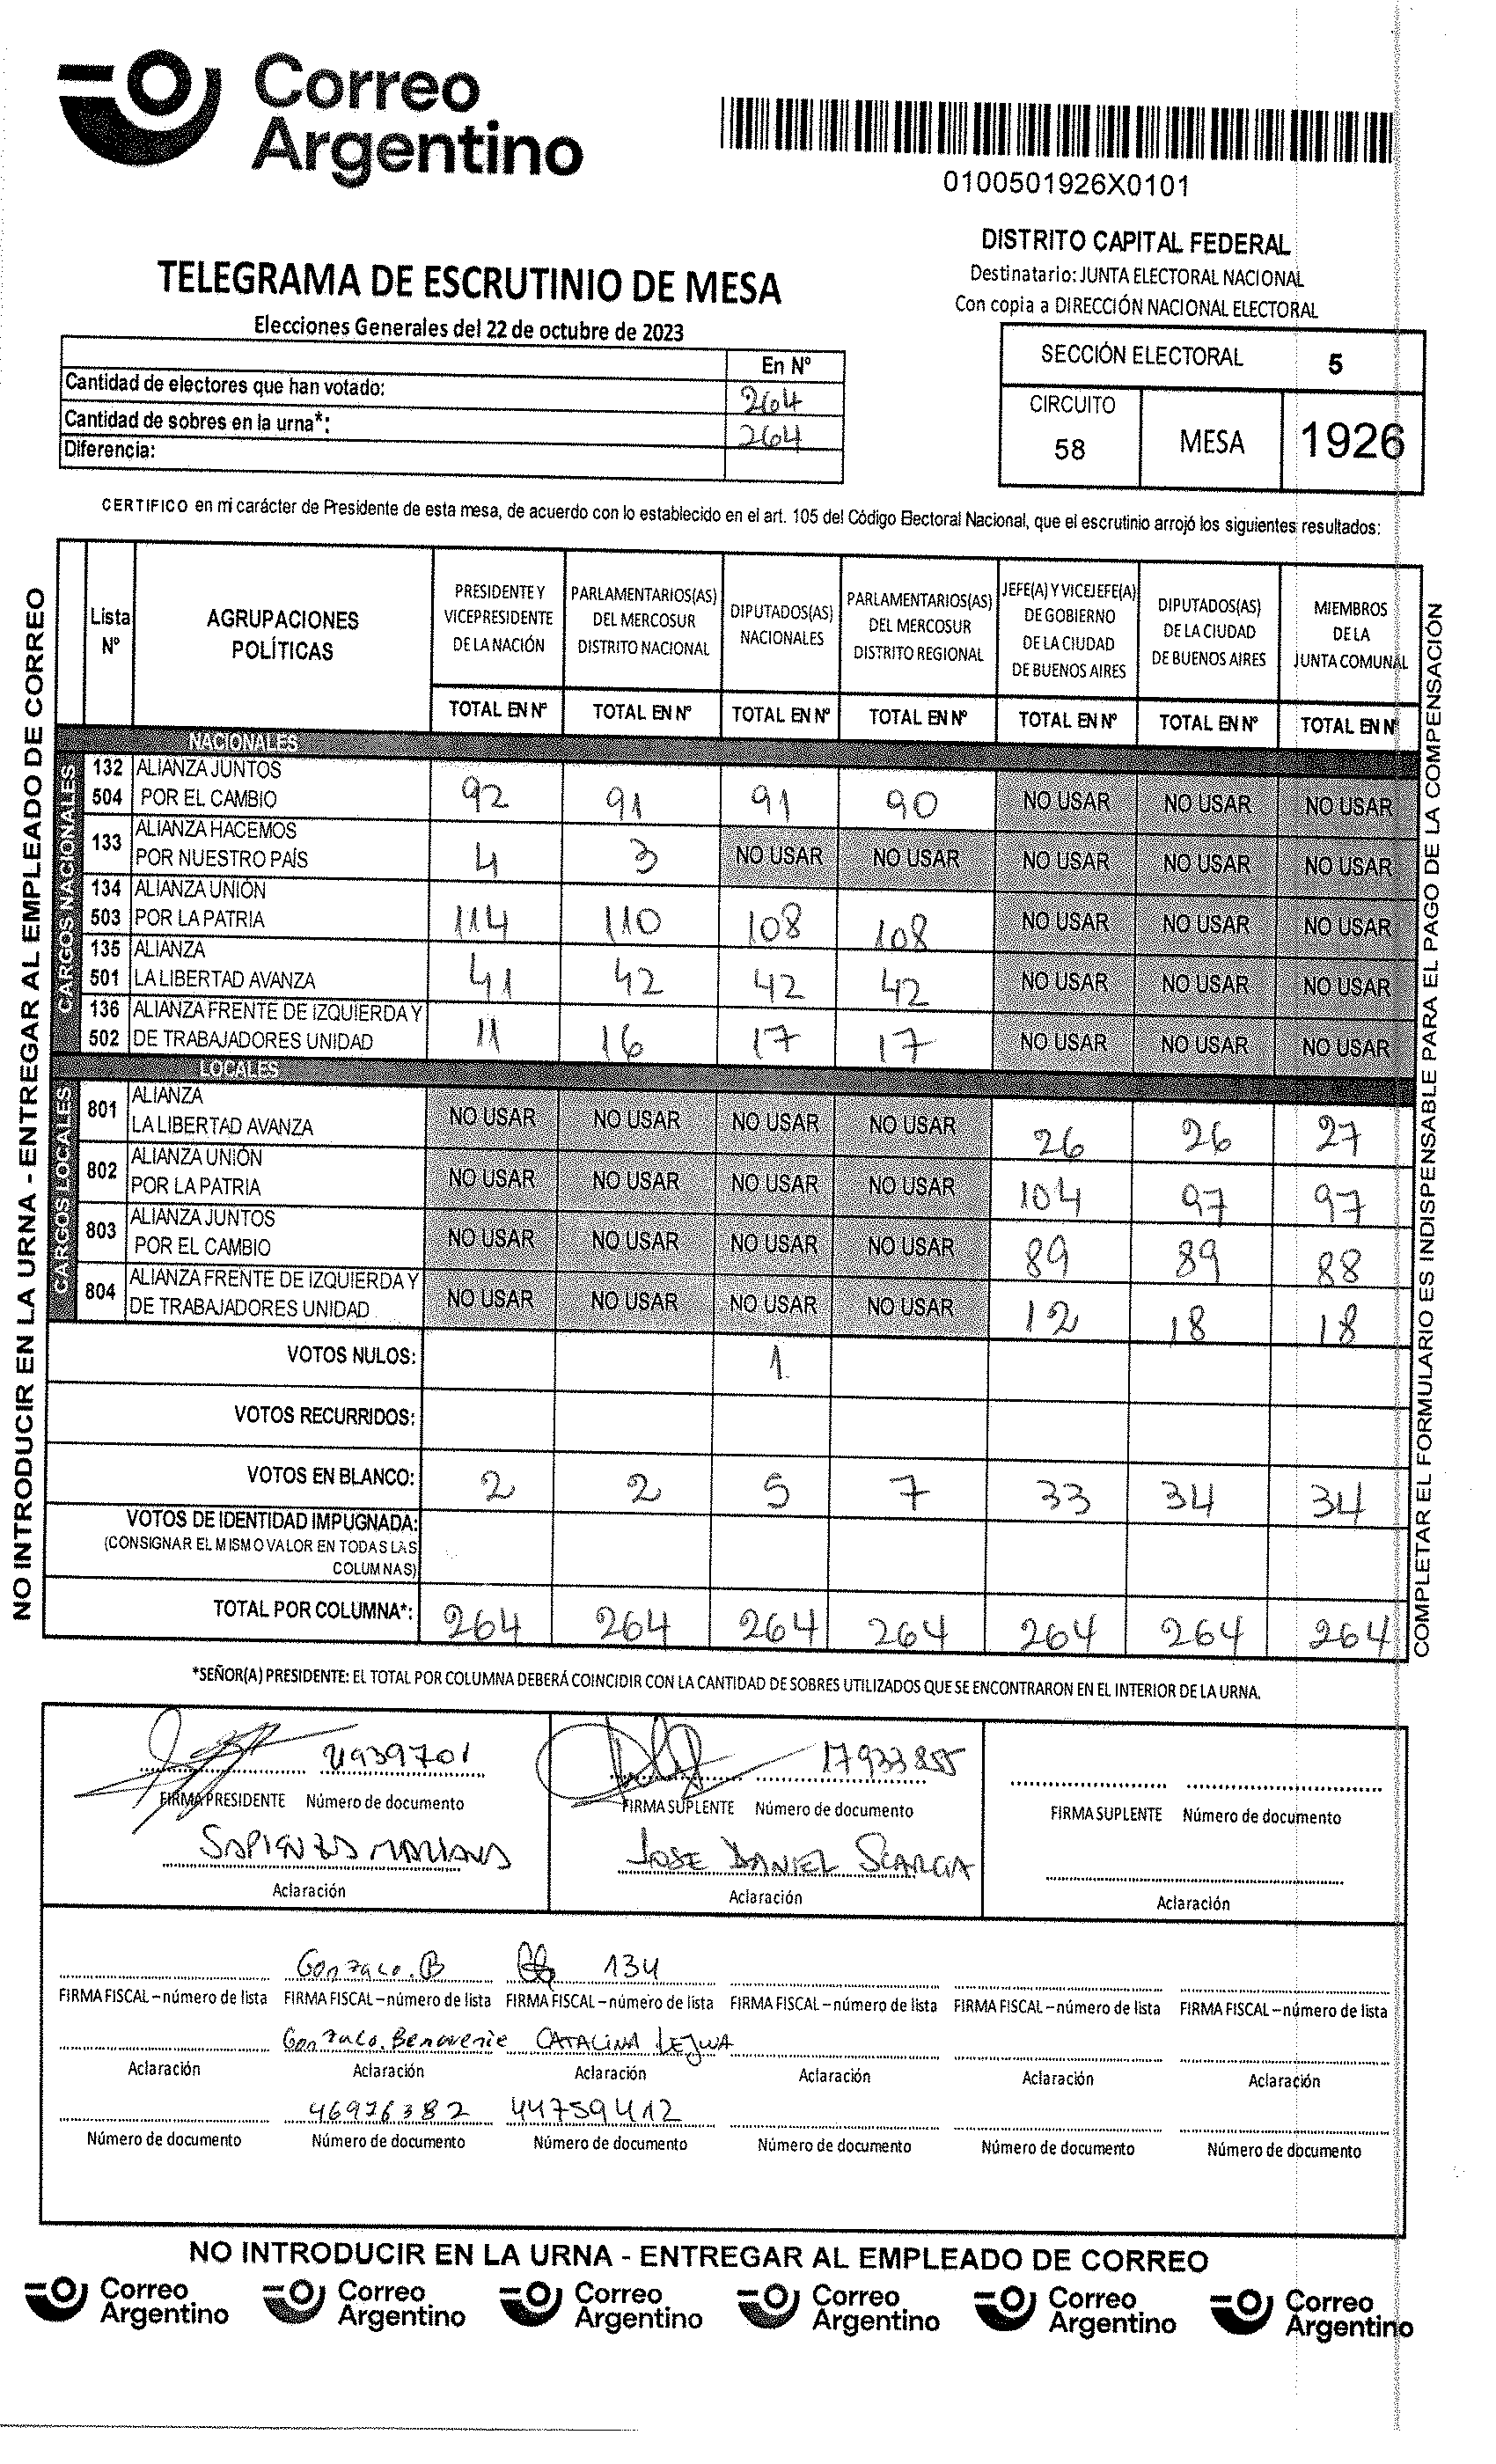 Correo
Argentino
0100501926X0101
DISTRITO CAPITAL FEDERAL
Destinatario: JUNTA ELECTORAL NACIONAL
Con copia a DIRECCIÓN NACIONAL ELECTORAL
TELEGRAMA DE ESCRUTINIO DE MESA
Elecciones Generales del 22 de octubre de 2023
En Nº
Cantidad de electores que han votado: 264
Cantidad de sobres en la urna*: 264
Diferencia:
SECCIÓN ELECTORAL 5
CIRCUITO
58 MESA 1926
CERTIFICO en mi carácter de Presidente de esta mesa, de acuerdo con lo establecido en el art. 105 del Código Electoral Nacional, que el escrutinio arrojó los siguientes resultados:
NO INTRODUCIR EN LA URNA - ENTREGAR AL EMPLEADO DE CORREO
COMPLETAR EL FORMULARIO ES INDISPENSABLE PARA EL PAGO DE LA COMPENSACIÓN
Lista Nº
AGRUPACIONES POLÍTICAS
PRESIDENTE Y VICEPRESIDENTE DE LA NACIÓN
PARLAMENTARIOS(AS) DEL MERCOSUR DISTRITO NACIONAL
DIPUTADOS(AS) NACIONALES
PARLAMENTARIOS(AS) DEL MERCOSUR DISTRITO REGIONAL
JEFE(A) Y VICEJEFE(A) DE GOBIERNO DE LA CIUDAD DE BUENOS AIRES
DIPUTADOS(AS) DE LA CIUDAD DE BUENOS AIRES
MIEMBROS DE LA JUNTA COMUNAL
TOTAL EN Nº TOTAL EN Nº TOTAL EN Nº TOTAL EN Nº TOTAL EN Nº TOTAL EN Nº TOTAL EN Nº
NACIONALES
CARGOS NACIONALES
132 504 ALIANZA JUNTOS POR EL CAMBIO 92 91 91 90 NO USAR NO USAR NO USAR
133 ALIANZA HACEMOS POR NUESTRO PAÍS 4 3 NO USAR NO USAR NO USAR NO USAR NO USAR
134 503 ALIANZA UNIÓN POR LA PATRIA 114 110 108 108 NO USAR NO USAR NO USAR
135 501 ALIANZA LA LIBERTAD AVANZA 41 42 42 42 NO USAR NO USAR NO USAR
136 502 ALIANZA FRENTE DE IZQUIERDA Y DE TRABAJADORES UNIDAD 11 16 17 17 NO USAR NO USAR NO USAR
LOCALES
CARGOS LOCALES
801 ALIANZA LA LIBERTAD AVANZA NO USAR NO USAR NO USAR NO USAR 26 26 27
802 ALIANZA UNIÓN POR LA PATRIA NO USAR NO USAR NO USAR NO USAR 104 97 97
803 ALIANZA JUNTOS POR EL CAMBIO NO USAR NO USAR NO USAR NO USAR 89 89 88
804 ALIANZA FRENTE DE IZQUIERDA Y DE TRABAJADORES UNIDAD NO USAR NO USAR NO USAR NO USAR 12 18 18
VOTOS NULOS: 1
VOTOS RECURRIDOS:
VOTOS EN BLANCO: 2 2 5 7 33 34 34
VOTOS DE IDENTIDAD IMPUGNADA:
(CONSIGNAR EL MISMO VALOR EN TODAS LAS COLUMNAS)
TOTAL POR COLUMNA*: 264 264 264 264 264 264 264
*SEÑOR(A) PRESIDENTE: EL TOTAL POR COLUMNA DEBERÁ COINCIDIR CON LA CANTIDAD DE SOBRES UTILIZADOS QUE SE ENCONTRARON EN EL INTERIOR DE LA URNA.
21939701 17933855
FIRMA PRESIDENTE Número de documento FIRMA SUPLENTE Número de documento FIRMA SUPLENTE Número de documento
SAPIENZA MARIANA JOSE DANIEL SCARCIA
Aclaración Aclaración Aclaración
Gonzalo.B 134
FIRMA FISCAL – número de lista FIRMA FISCAL – número de lista FIRMA FISCAL – número de lista FIRMA FISCAL – número de lista FIRMA FISCAL – número de lista FIRMA FISCAL – número de lista
Gonzalo. Benavente CATALINA
Aclaración Aclaración Aclaración Aclaración Aclaración Aclaración
46976382 44759412
Número de documento Número de documento Número de documento Número de documento Número de documento Número de documento
NO INTRODUCIR EN LA URNA - ENTREGAR AL EMPLEADO DE CORREO
Correo Argentino Correo Argentino Correo Argentino Correo Argentino Correo Argentino Correo Argentino